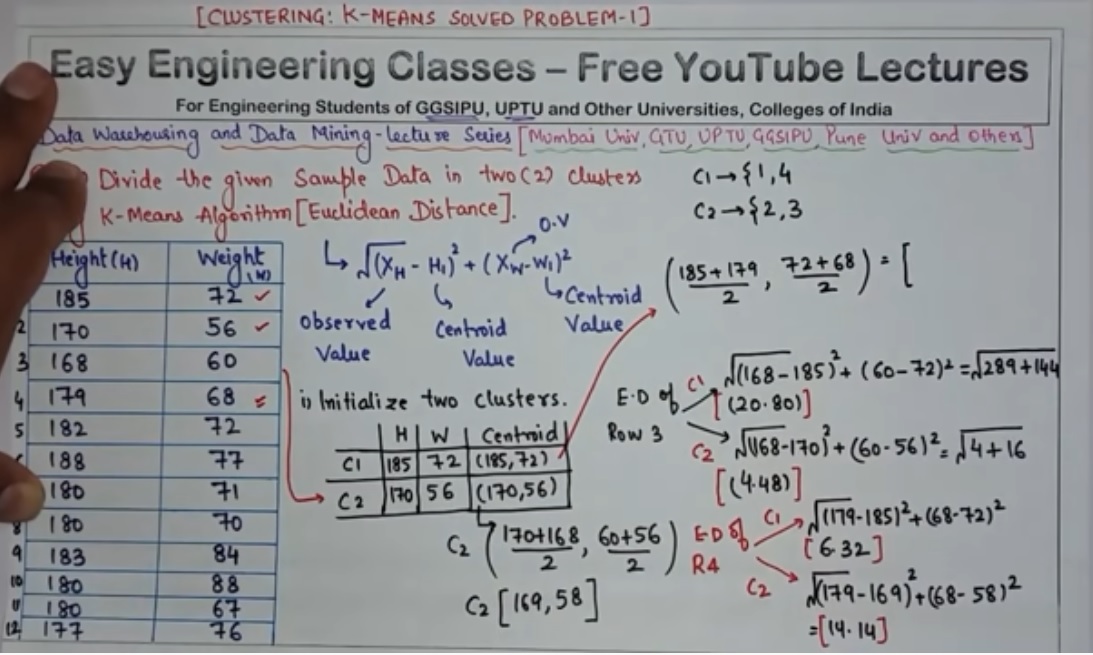 [CLUSTERING: K-MEANS SOLVED PROBLEM-1]
Easy Engineering Classes – Free YouTube Lectures
For Engineering Students of GGSIPU, UPTU and Other Universities, Colleges of India
Data Warehousing and Data Mining-Lecture Series [Mumbai Univ, GTU, UPTU, GGSIPU, Pune Univ and others]
Divide the given Sample Data in two(2) clusters
K-Means Algorithm [Euclidean Distance].
C1→{1,4
C2→{2,3
Height(H) Weight (W)
185 72 ✓
2 170 56 ✓
3 168 60
4 179 68
5 182 72
188 77
180 71
8 180 70
9 183 84
10 180 88
11 180 67
12 177 76
↳ √(X_H - H₁)² + (X_W - W₁)²
O.V
Observed Value
Centroid Value
Centroid Value
i) Initialize two clusters.
H W Centroid
C1 185 72 (185,72)
C2 170 56 (170,56)
C2 (170+168/2, 60+56/2)
C2 [169,58]
(185+179/2, 72+68/2) = [
E.D of Row 3
C1 √(168-185)² + (60-72)² = √289+144
[(20.80)]
C2 √(168-170)² + (60-56)² = √4+16
[(4.48)]
E.D of R4
C1 √(179-185)² + (68-72)²
[6.32]
C2 √(179-169)² + (68-58)²
=[14.14]